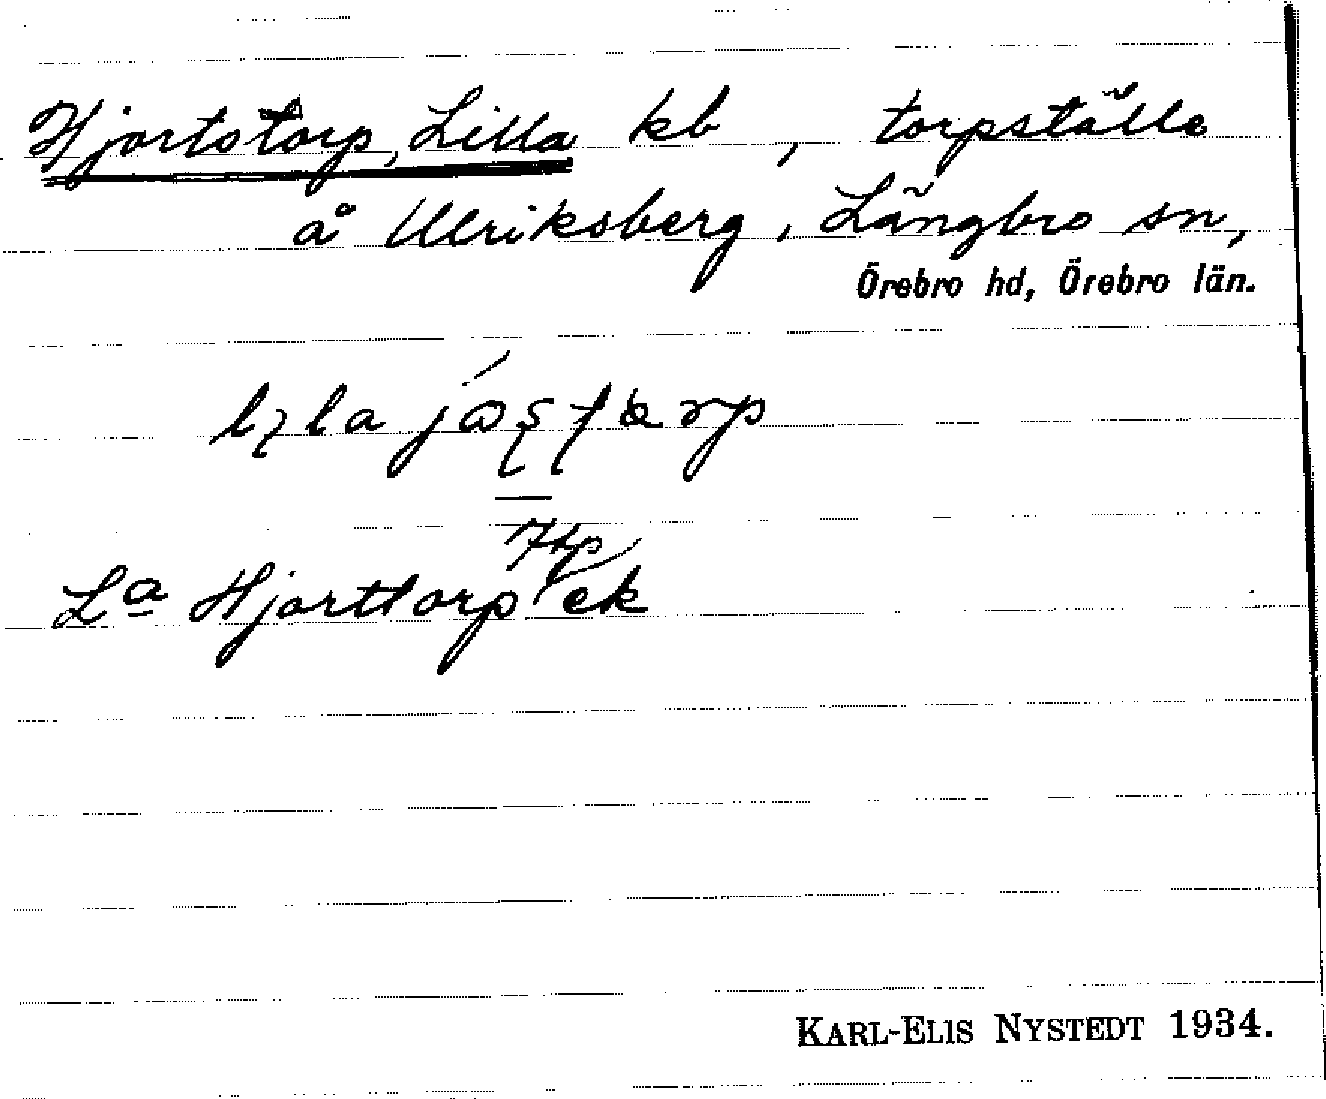 Hjortstorp, Lilla kb, torpställe
å Ulriksberg, Längbro sn,
Örebro hd, Örebro län.
La Hjorttorp ek
KARL-ELIS NYSTEDT 1934.